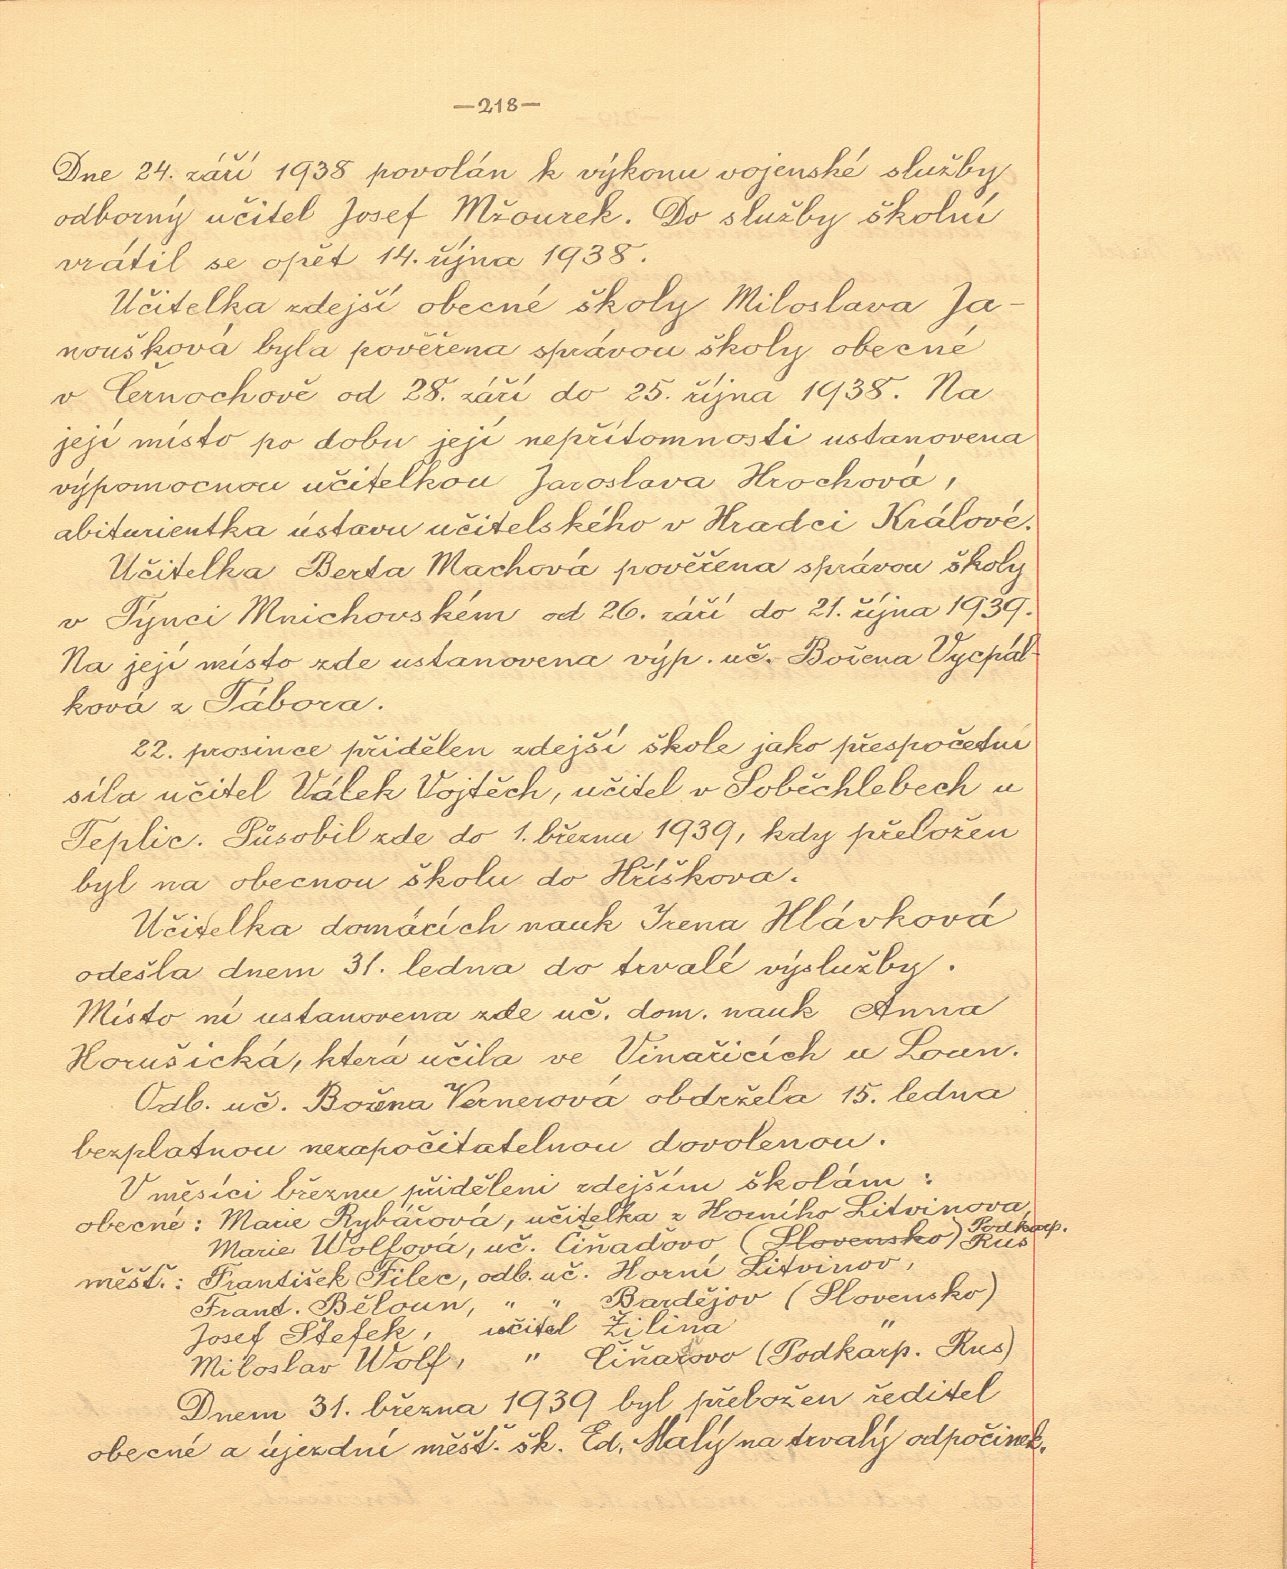 —218—
Dne 24. září 1938 povolán k výkonu vojenské služby
odborný učitel Josef Mžourek. Do služby školní
vrátil se opět 14. října 1938.
Učitelka zdejší obecné školy Miloslava Ja-
noušková byla pověřena správou školy obecné
v Černochově od 28. září do 25. října 1938. Na
její místo po dobu její nepřítomnosti ustanovena
výpomocnou učitelkou Jaroslava Hrochová,
abiturientka ústavu učitelského v Hradci Králové.
Učitelka Berta Machová pověřena správou školy
v Týnci Mnichovském od 26. září do 21. října 1939.
Na její místo zde ustanovena výp. uč. Božena Vycpál-
ková z Tábora.
22. prosince přidělen zdejší škole jako přespočetní
síla učitel Válek Vojtěch, učitel v Soběchlebech u
Teplic. Působil zde do 1. březnu 1939, kdy přeložen
byl na obecnou školu do Hříškova.
Učitelka domácích nauk Irena Hlávková
odešla dnem 31. ledna do trvalé výslužby.
Místo ní ustanovena zde uč. dom. nauk Anna
Horušická, která učila ve Vinařicích u Loun.
Odb. uč. Božena Vernerová obdržela 15. ledna
bezplatnou nezapočitatelnou dovolenou.
V měsíci březnu přiděleni zdejším školám:
obecné: Marie Rybářová, učitelka z Horního Litvínova,
Marie Wolfová, uč. Čiňaďovo (Slovensko) Podkarp. Rus
měšť.: František Filec, odb. uč. Horní Litvínov,
Frant. Běloun, " " Bardějov (Slovensko)
Josef Štefek, učitel Žilina "
Miloslav Wolf, " Čiňaďovo (Podkarp. Rus)
Dnem 31. března 1939 byl přeložen ředitel
obecné a újezdní měšť. šk. Ed. Malý na trvalý odpočinek.